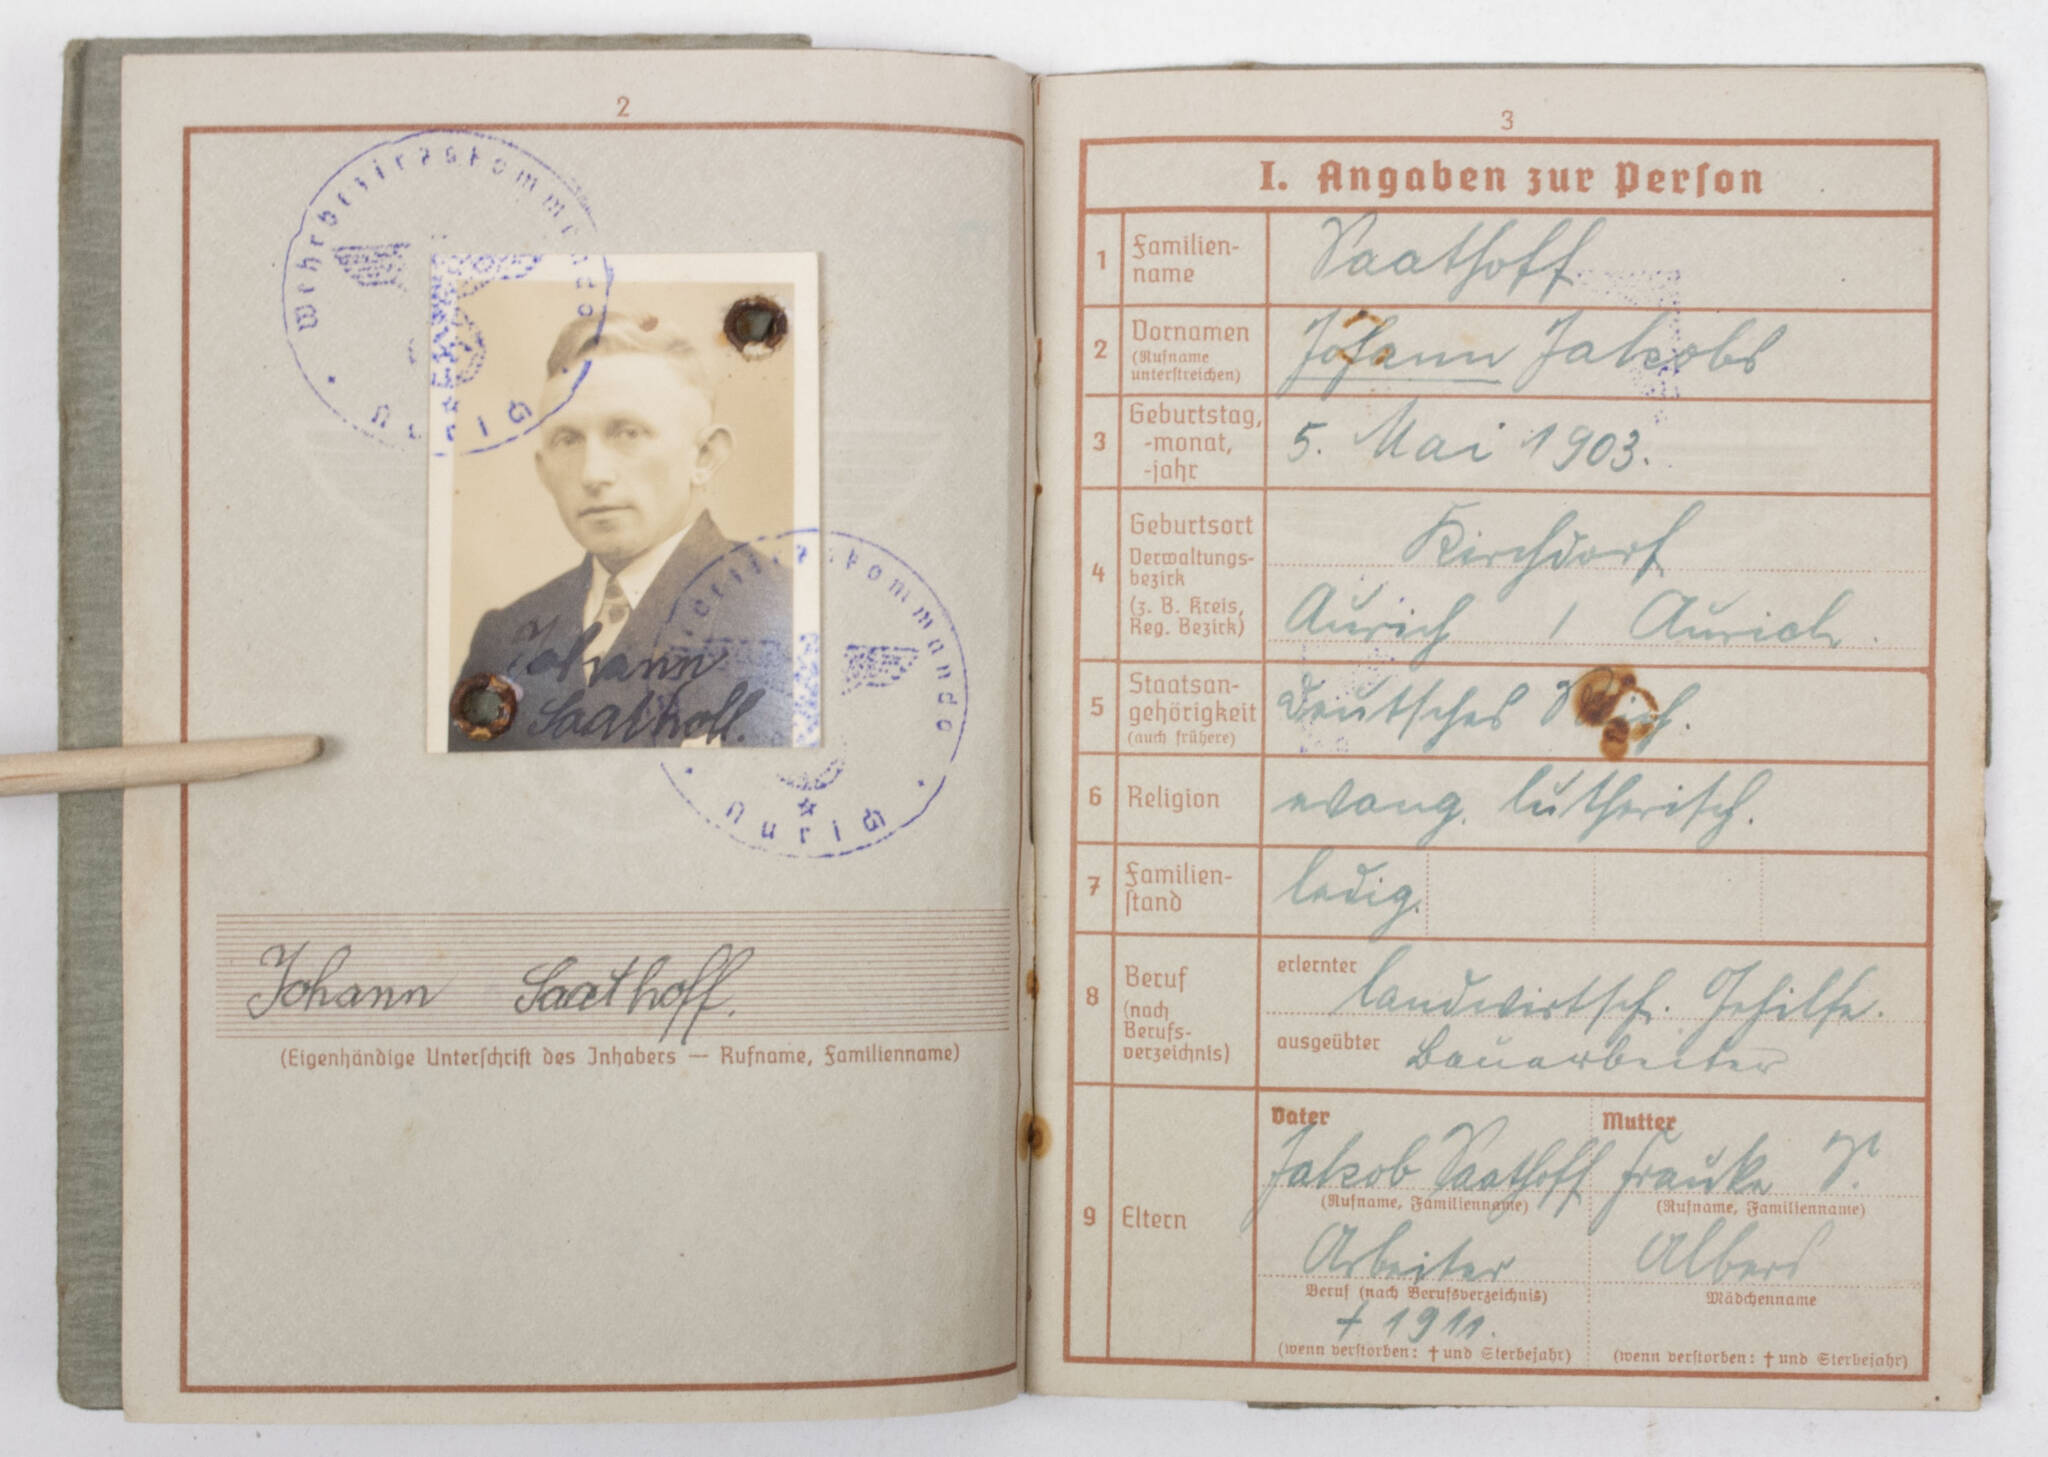 2
Wehrbezirkskommando
Aurich
Johann
Saathoff.
Wehrbezirkskommando
Aurich
Johann Saathoff.
(Eigenhändige Unterſchrift des Inhabers — Rufname, Familienname)
3
I. Angaben zur Perſon
1 Familien-
name
Saathoff
2 Vornamen
(Rufname
unterſtreichen)
Johann Jakobs
3 Geburtstag,
-monat,
-jahr
5. Mai 1903.
4 Geburtsort
Verwaltungs-
bezirk
(z. B. Kreis,
Reg. Bezirk)
Kirchdorf
Aurich / Aurich.
5 Staatsan-
gehörigkeit
(auch frühere)
Deutsches Reich.
6 Religion
evang. lutherisch.
7 Familien-
ſtand
ledig.
8 Beruf
(nach
Berufs-
verzeichnis)
erlernter
landwirtsch. Gehilfe.
ausgeübter Bauarbeiter
9 Eltern
Vater
Jakob Saathoff
(Rufname, Familienname)
Arbeiter
Beruf (nach Berufsverzeichnis)
† 1911.
(wenn verſtorben: † und Sterbejahr)
Mutter
Frauke S.
(Rufname, Familienname)
Albers
Mädchenname
(wenn verſtorben: † und Sterbejahr)